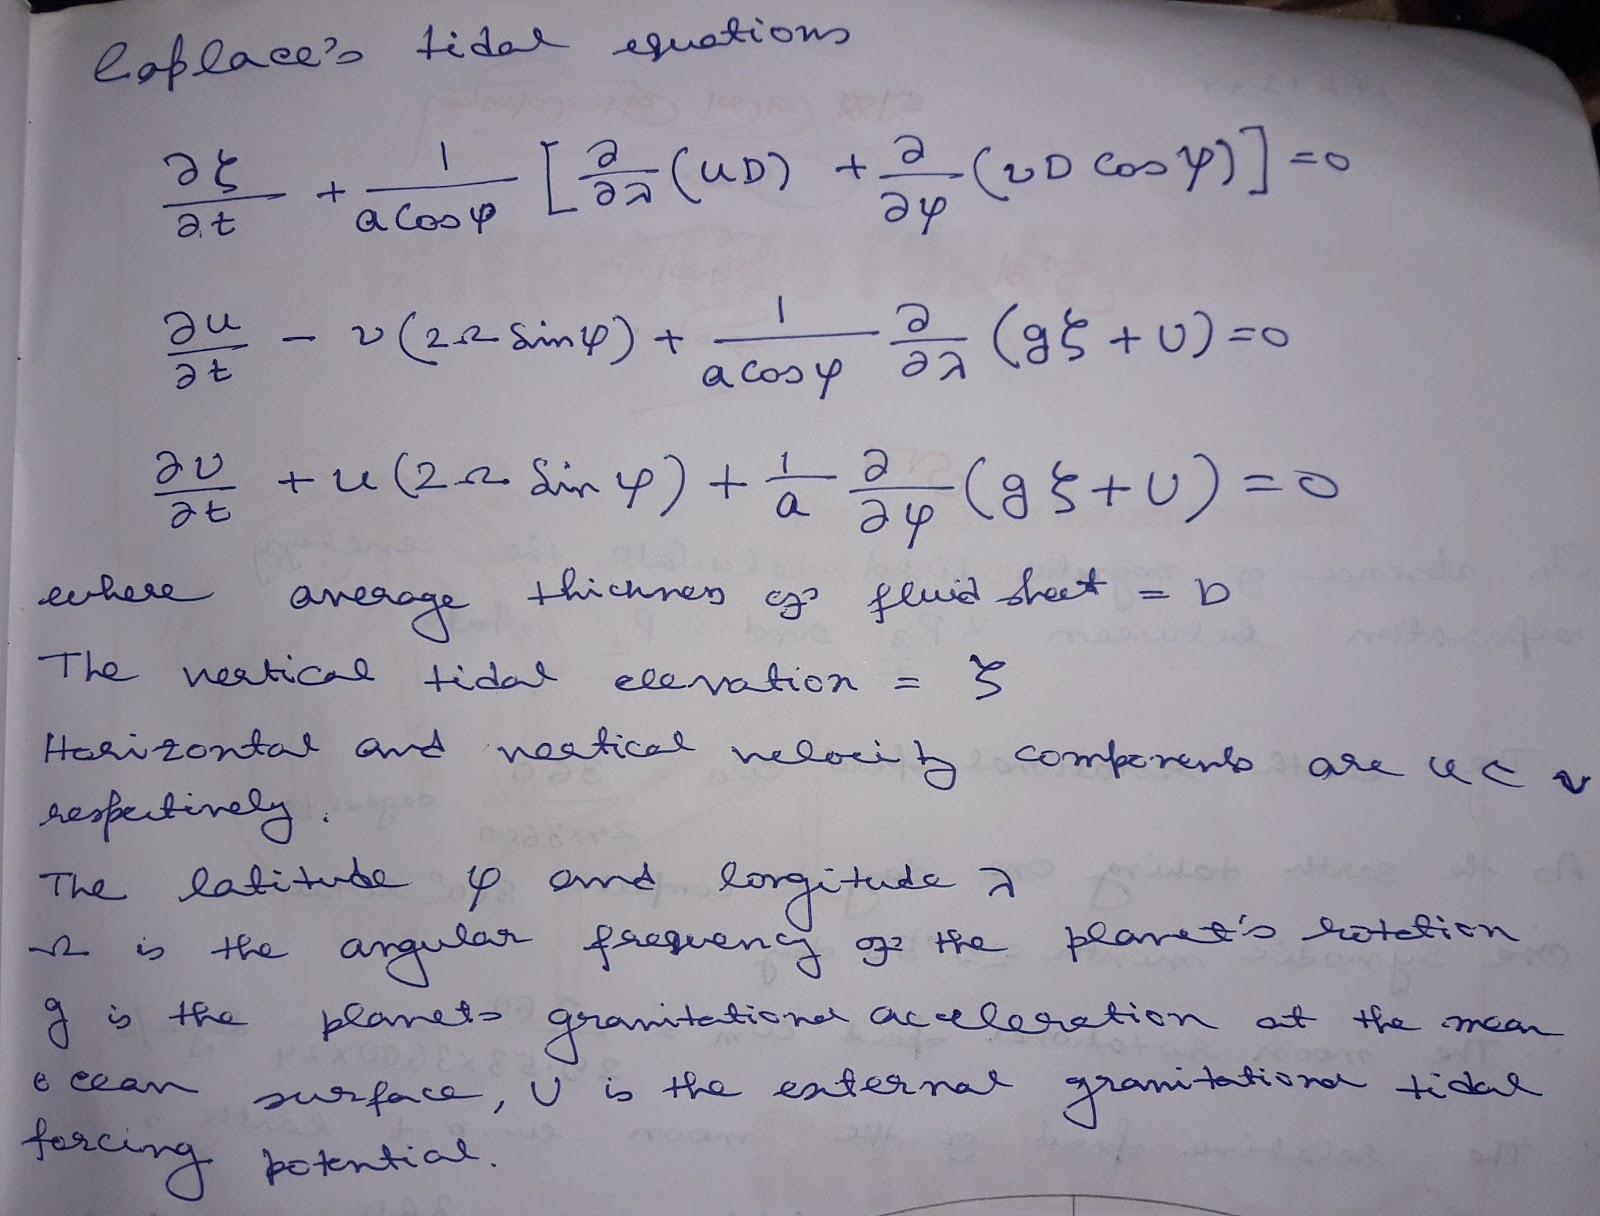 Laplace's tidal equations
∂ζ/∂t + 1/(a cos φ) [∂/∂λ (uD) + ∂/∂φ (vD cos φ)] = 0
∂u/∂t - v(2Ω sin φ) + 1/(a cos φ) ∂/∂λ (gζ + U) = 0
∂v/∂t + u(2Ω sin φ) + 1/a ∂/∂φ (gζ + U) = 0
where average thickness of fluid sheet = D
The vertical tidal elevation = ζ
Horizontal and vertical velocity components are u & v
respectively.
The latitude φ and longitude λ
Ω is the angular frequency of the planet's rotation
g is the planets gravitational acceleration at the mean
ocean surface, U is the external gravitational tidal
forcing potential.